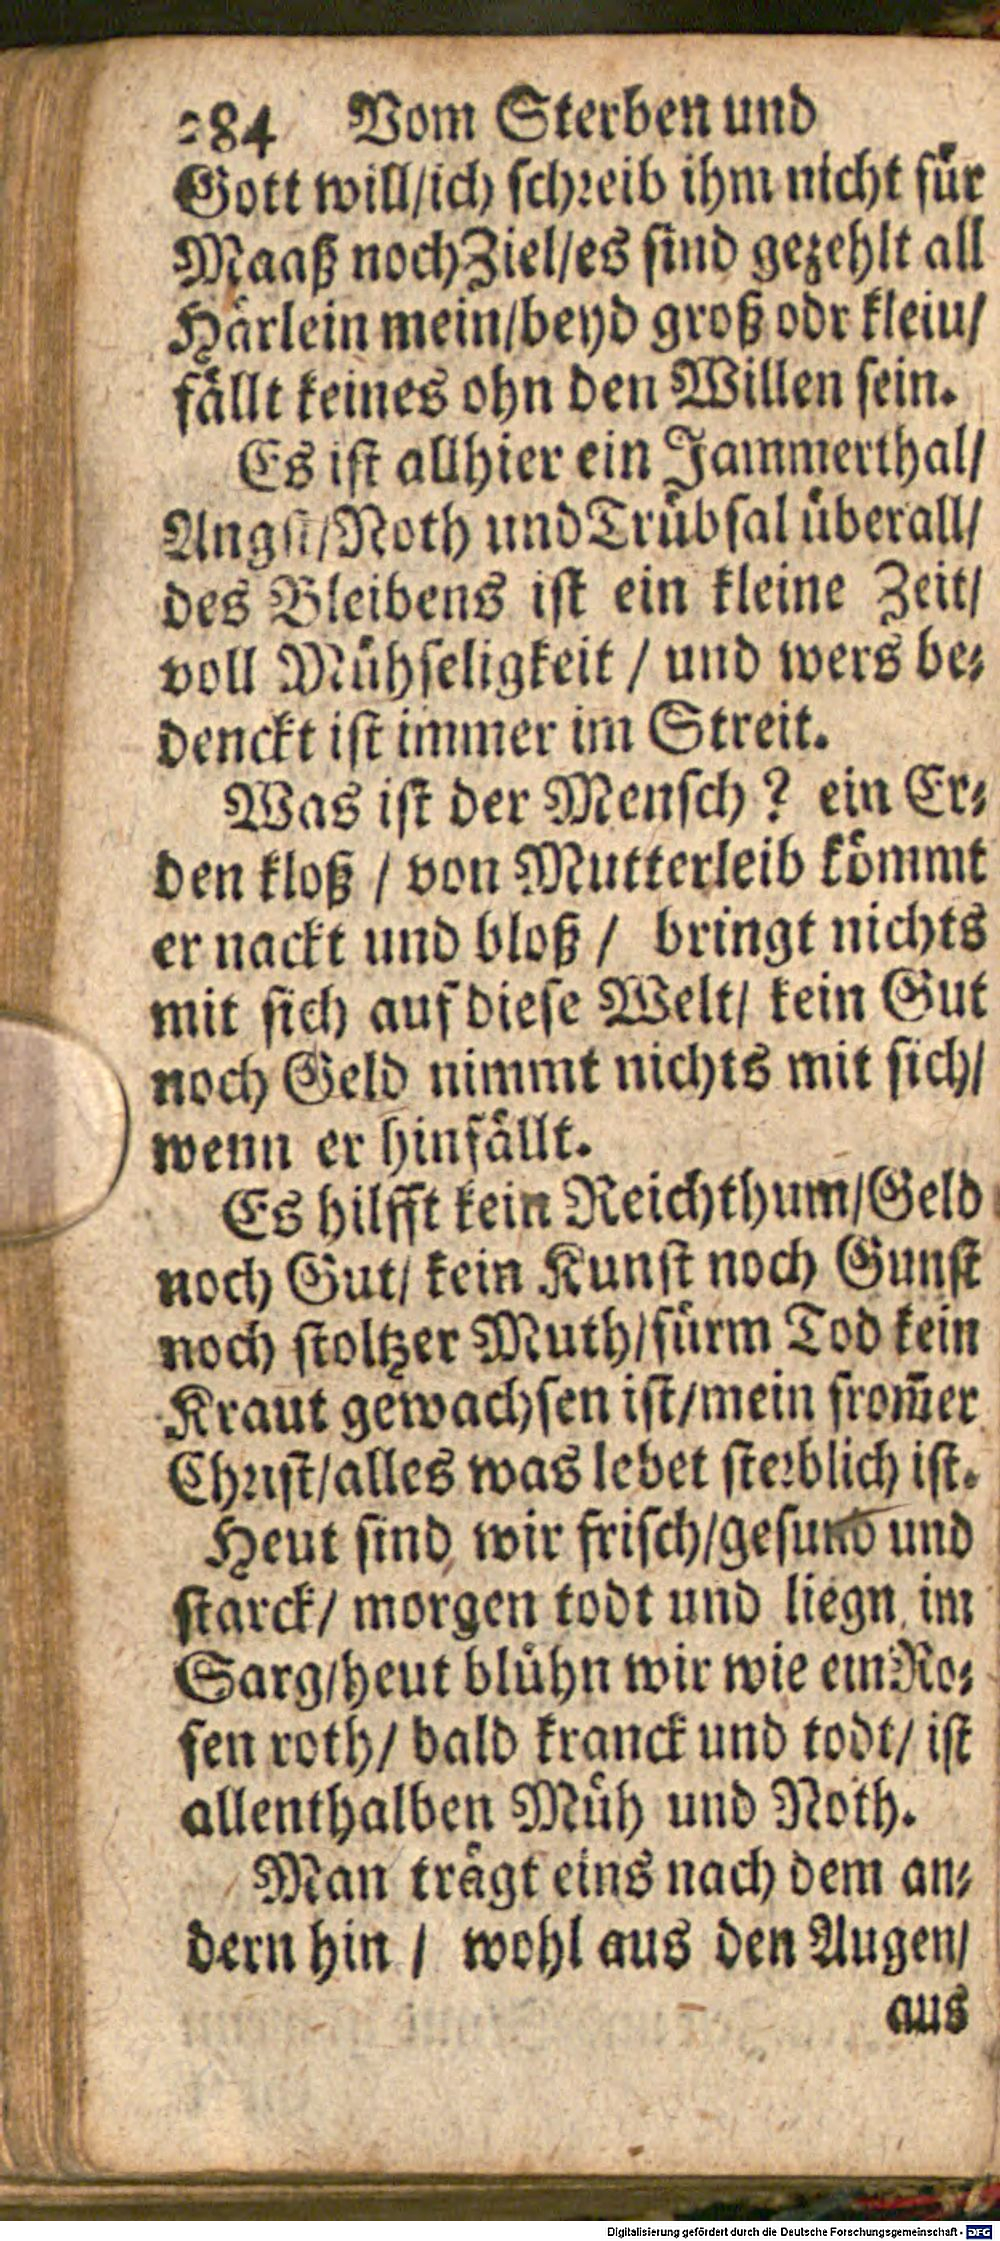 284 Vom Sterben und
Gott will/ich schreib ihm nicht für
Maaß noch Ziel/es sind gezehlt all
Härlein mein/beyd groß odr kleiu/
fällt keines ohn den Willen sein.
Es ist allhier ein Jammerthal/
Angst/Noth und Trübsal überall/
des Bleibens ist ein kleine Zeit/
voll Mühseligkeit / und wers be-
denckt ist immer im Streit.
Was ist der Mensch? ein Er-
den kloß / von Mutterleib kömmt
er nackt und bloß / bringt nichts
mit sich auf diese Welt/ kein Gut
noch Geld nimmt nichts mit sich/
wenn er hinfällt.
Es hilfft kein Reichthum/Geld
noch Gut/ kein Kunst noch Gunst
noch stoltzer Muth/fürm Tod kein
Kraut gewachsen ist/mein from̃er
Christ/alles was lebet sterblich ist.
Heut sind wir frisch/gesund und
starck/ morgen todt und liegn im
Sarg/heut blühn wir wie ein Ro-
sen roth/ bald kranck und todt/ ist
allenthalben Müh und Noth.
Man trägt eins nach dem an-
dern hin / wohl aus den Augen/
aus
Digitalisierung gefördert durch die Deutsche Forschungsgemeinschaft - DFG